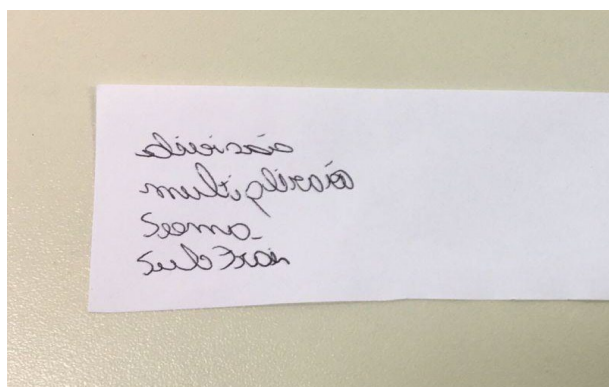 divisão
multiplicação
soma
subtrai